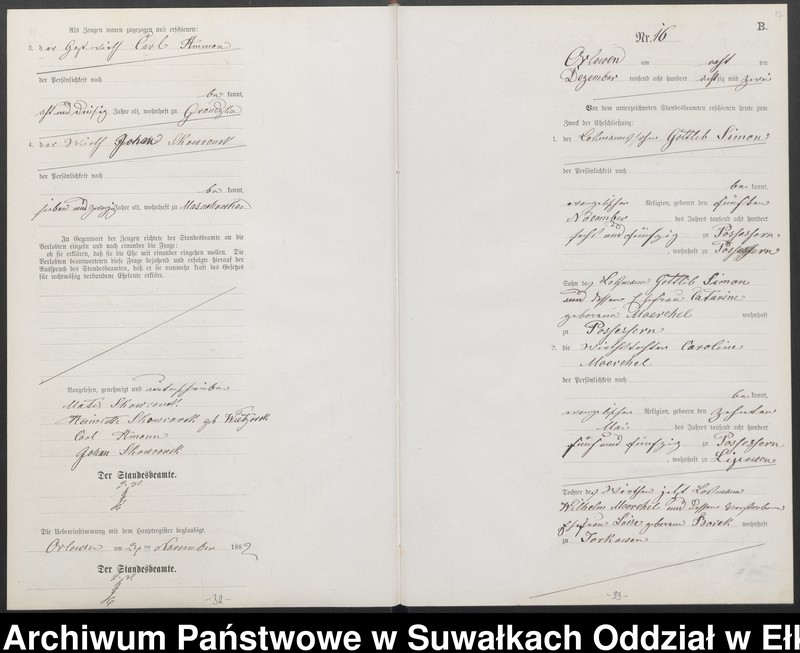 Als Zeugen waren zugezogen und erschienen:
3. der Gastwirth Carl Ammon
der Persönlichkeit nach
be kannt,
acht und dreißig Jahre alt, wohnhaft zu
4. der Wirth Johan Skowronek
der Persönlichkeit nach
be kannt,
sieben und zwanzig Jahre alt, wohnhaft zu
In Gegenwart der Zeugen richtete der Standesbeamte an die
Verlobten einzeln und nach einander die Frage:
ob sie erklären, daß sie die Ehe mit einander eingehen wollen. Die
Verlobten beantworteten diese Frage bejahend und erfolgte hierauf der
Ausspruch des Standesbeamten, daß er sie nunmehr kraft des Gesetzes
für rechtmäßig verbundene Eheleute erkläre.
Vorgelesen, genehmigt und unterschrieben
Matis Skowronek.
Heinriette Skowronek geb
Carl Amonn
Johan Skowronek
Der Standesbeamte.
Die Uebereinstimmung mit dem Hauptregister beglaubigt.
Orlowen am November 1882
Der Standesbeamte.
-32-
B.
Nr. 16
Orlowen am acht ten
Dezember tausend acht hundert achtzig und zwei
Vor dem unterzeichneten Standesbeamten erschienen heute zum
Zweck der Eheschließung:
1. der Losmannssohn Gottlieb Simon
der Persönlichkeit nach
be kannt,
evangelischer Religion, geboren den fünften
November des Jahres tausend acht hundert
sechs und fünfzig zu Possessern
, wohnhaft zu Possessern
Sohn des Losmann Gottlieb Simon
und dessen Ehefrau Catarine
geborene Moerchel wohnhaft
zu Possessern
2. die Wirthstochter Caroline
Moerchel
der Persönlichkeit nach
be kannt,
evangelischer Religion, geboren den zehnten
Mai des Jahres tausend acht hundert
fünf und fünfzig zu Possessern
, wohnhaft zu Lipowen
Tochter des Wirthen jetzt Losmann
Wilhelm Moerchel und dessen verstorbenen
Ehefrau Loise geborene Borek wohnhaft
zu Jorkowen
-33-
Archiwum Państwowe w Suwałkach Oddział w Ełk